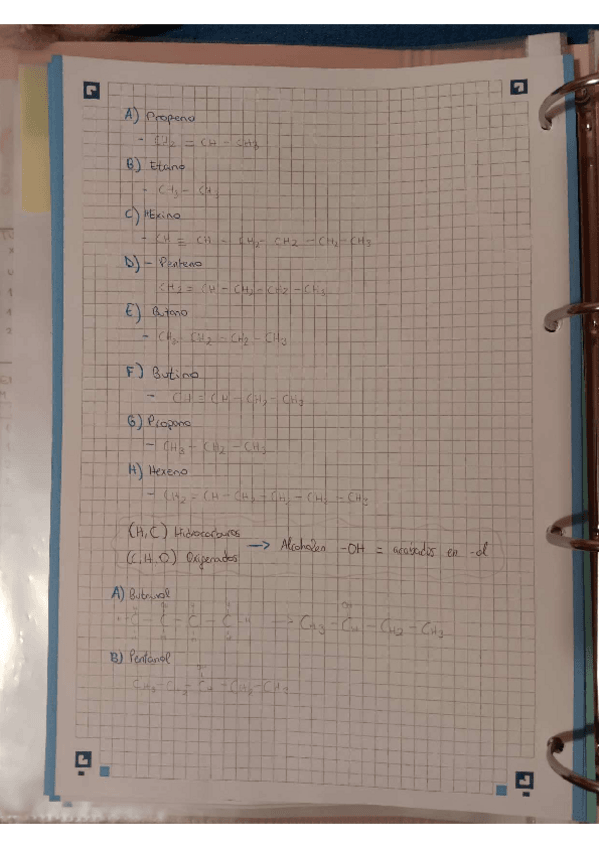 A) Propeno
- CH2 = CH - CH3
B) Etano
- CH3 - CH3
C) HExino
- CH ≡ CH - CH2 - CH2 - CH2 - CH3
D) - Penteno
CH2 = CH - CH2 - CH2 - CH3
E) Butano
- CH3 - CH2 - CH2 - CH3
F) Butino
- CH ≡ CH - CH2 - CH3
G) Propano
- CH3 - CH2 - CH3
H) Hexeno
- CH2 = CH - CH2 - CH2 - CH2 - CH3
(H,C) Hidrocarburos
(C,H,O) Oxigenados → Alcoholes -OH = acabados en -ol
A) Butanol
→ CH3 - CH - CH2 - CH3
B) Pentanol
CH3 - CH2 - CH - CH2 - CH3